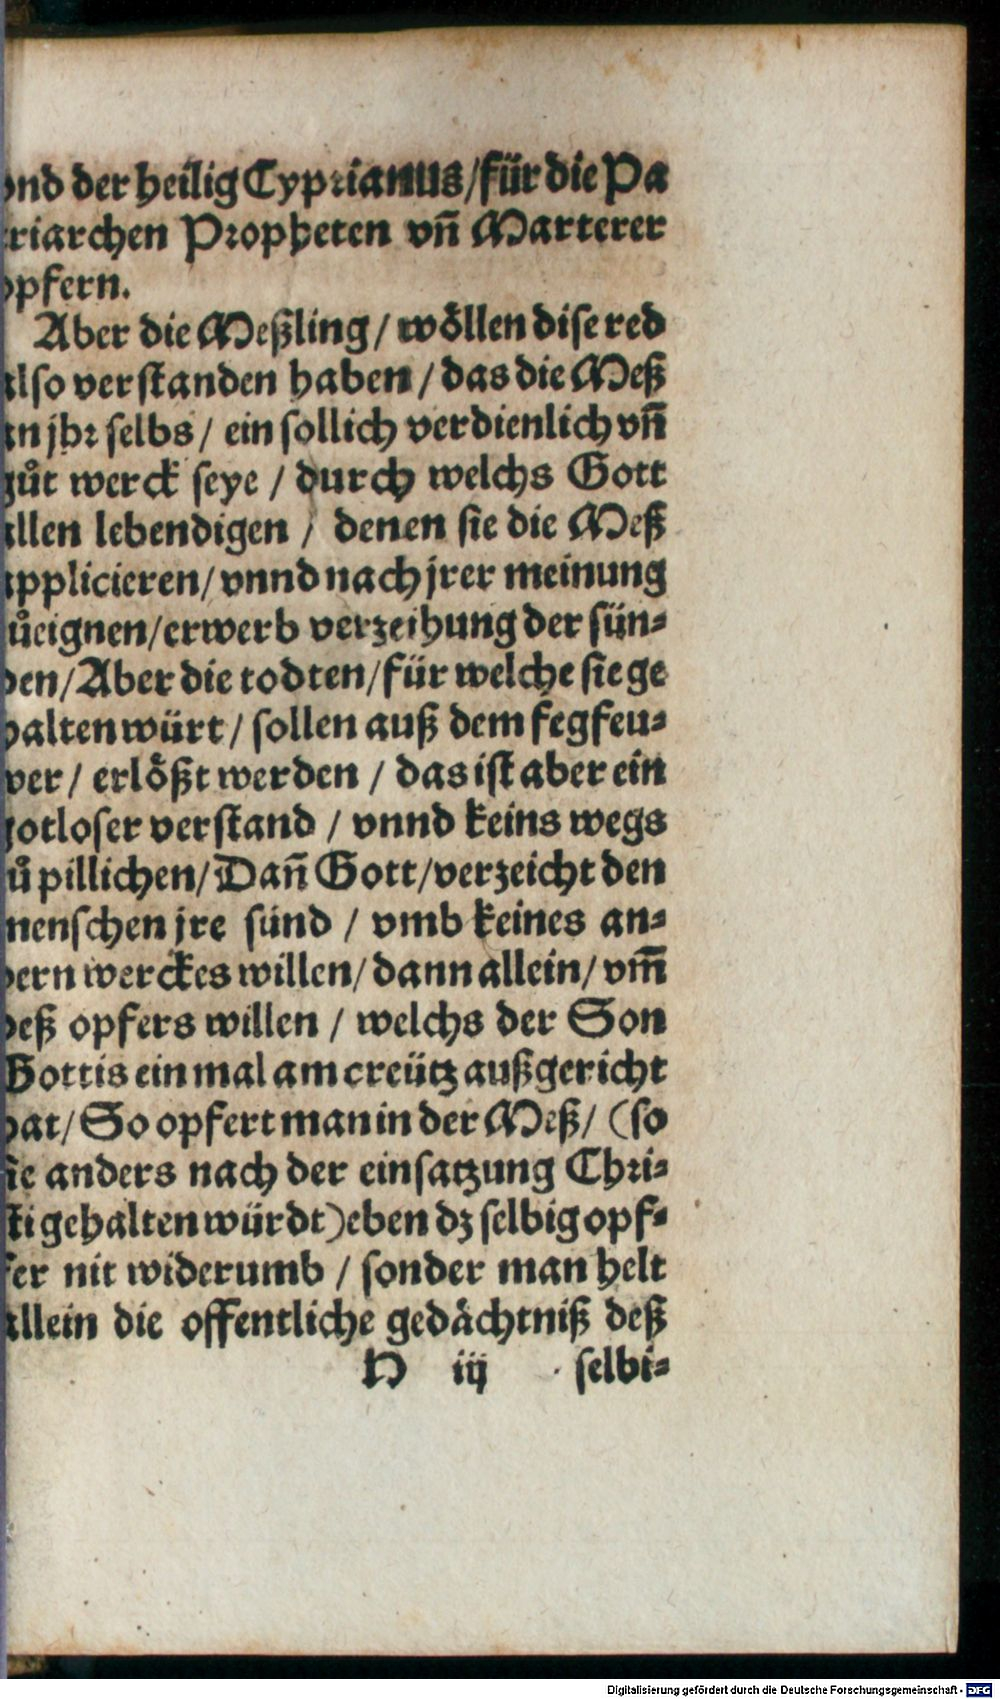 vnd der heilig Cyprianus/für die Pa
triarchen Propheten vñ Marterer
opfern.
Aber die Meßling/ wöllen dise red
also verstanden haben/ das die Meß
an jhr selbs/ ein sollich verdienlich vñ
gůt werck seye/ durch welchs Gott
allen lebendigen/ denen sie die Meß
applicieren/ vnnd nach jrer meinung
zůeignen/erwerb verzeihung der sün-
den/Aber die todten/für welche sie ge
halten würt/ sollen auß dem fegfeu-
wer/ erlößt werden/ das ist aber ein
gotloser verstand/ vnnd keins wegs
zů pillichen/Dañ Gott/verzeicht den
menschen jre sünd/ vmb keines an-
dern werckes willen/ dann allein/ vm̃
deß opfers willen/ welchs der Son
Gottis ein mal am creütz außgericht
hat/ So opfert man in der Meß/ (so
sie anders nach der einsatzung Chri-
sti gehalten würdt)eben dz selbig opf-
fer nit widerumb/ sonder man helt
allein die offentliche gedächtniß deß
H iij selbi-
Digitalisierung gefördert durch die Deutsche Forschungsgemeinschaft - DFG